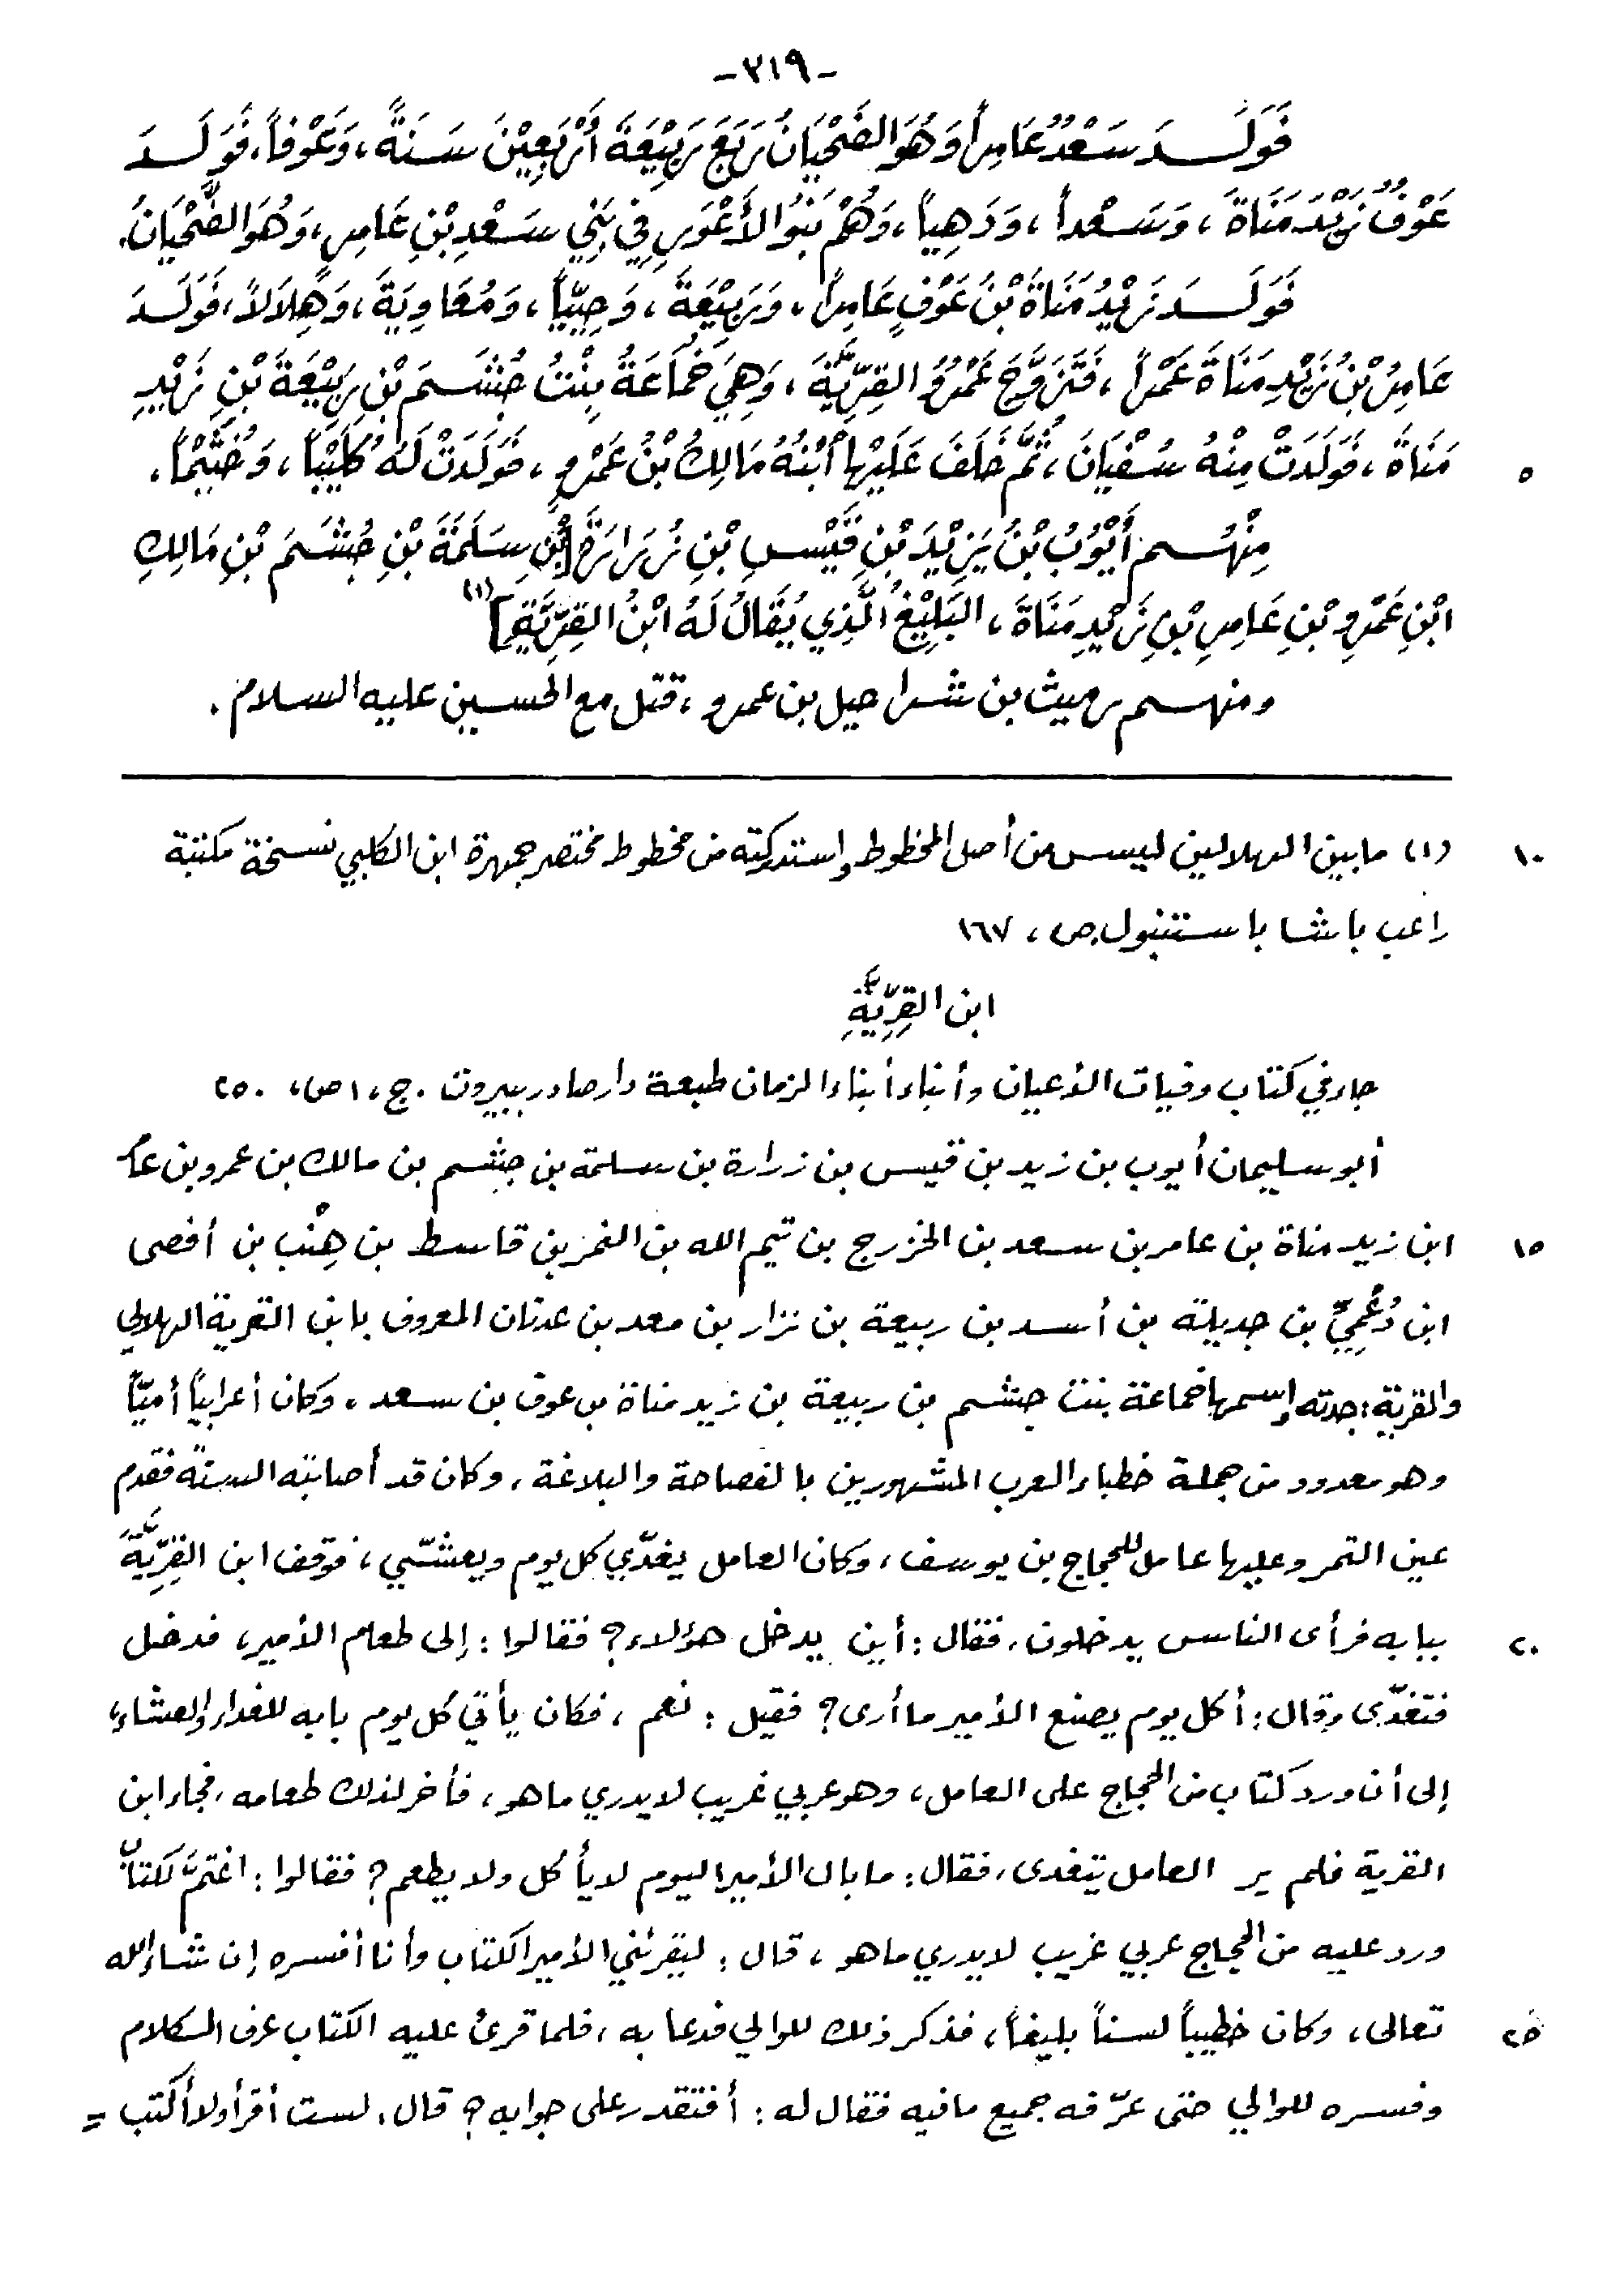 -٣١٩-
فَوَلَدَ سَعْدٌ عَامِراً وَهُوَ الضَّحْيَانُ رَبَعَ رَبِيْعَةَ أَرْبَعِيْنَ سَنَةً، وَعَوْفاً، فَوَلَدَ
عَوْفٌ زَيْدَ مَنَاةَ، وَسَعْداً، وَدَهِياً، وَهُمْ بَنُو الأَعْوَرِ فِي بَنِي سَعْدِ بْنِ عَامِرٍ، وَهُوَ الضَّحْيَانُ.
فَوَلَدَ زَيْدُ مَنَاةَ بْنُ عَوْفٍ عَامِراً، وَرَبِيْعَةَ، وَحِيَيّاً، وَمُعَاوِيَةَ، وَهِلاَلاً، فَوَلَدَ
عَامِرُ بْنُ زَيْدِ مَنَاةَ عَمْراً، فَتَزَوَّجَ عَمْرُو القِرِّيَّةَ، وَهِيَ خُمَاعَةُ بِنْتُ جُشَمَ بْنِ رَبِيْعَةَ بْنِ زَيْدِ
مَنَاةَ، فَوَلَدَتْ مِنْهُ سُفْيَانَ، ثُمَّ خَلَفَ عَلَيْهَا ابْنُهُ مَالِكُ بْنُ عَمْرٍو، فَوَلَدَتْ لَهُ كُلَيْباً، وَجُشَماً. ٥
مِنْهُم أَيُّوْبُ بْنُ يَزِيْدَ بْنِ قَيْسِ بْنِ زُرَارَةَ [بْنِ سَلَمَةَ بْنِ جُشَمَ بْنِ مَالِكِ
ابْنِ عَمْرِو بْنِ عَامِرِ بْنِ زَيْدِ مَنَاةَ، البَلِيْغُ الَّذِي يُقَالُ لَهُ ابْنُ القِرِّيَّةِ] (١)
ومنهم رميث بن شراحيل بن عمرو، قتل مع الحسين عليه السلام.
(١) مابين الهلالين ليس من أصل المخطوط واستدركته من مخطوط مختصر جمهرة ابن الكلبي نسخة مكتبة ١٠
راغب باشا باستنبول.ص، ١٦٧
ابن القِرِّيَّةِ
جاء في كتاب وفيات الأعيان وأنباء أبناء الزمان طبعة دار صادر ببيروت. ج،١ ص، ٢٥٠
أبو سليمان أيوب بن زيد بن قيس بن زرارة بن سلمة بن جشم بن مالك بن عمرو بن عامر
ابن زيد مناة بن عامر بن سعد بن الخزرج بن تيم الله بن النمر بن قاسط بن هِنْب بن أفصى ١٥
ابن دُعْمِيّ بن جديلة بن أسد بن ربيعة بن نزار بن معد بن عدنان المعروف بابن القرية الهلالي
والقرية: جدته واسمها خماعة بنت جشم بن ربيعة بن زيد مناة بن عوف بن سعد. وكان أعرابياً أميّاً
وهو معدود من جملة خطباء العرب المشهورين بالفصاحة والبلاغة، وكان قد أصابته السنة فقدم
عين التمر وعليها عامل للحجاج بن يوسف، وكان العامل يغدّي كل يوم ويعشّي، فوقف ابن القِرِّيَّةَ
ببابه فرأى الناس يدخلون، فقال: أين يدخل هؤلاء؟ فقالوا: إلى طعام الأمير، فدخل ٢٠
فتغدّى وقال: أكل يوم يصنع الأمير ما أرى؟ فقيل: نعم، فكان يأتي كل يوم بابه للغداء والعشاء،
إلى أن ورد كتاب من الحجاج على العامل، وهو عربي غريب لايدري ماهو، فأخر لذلك طعامه، فجاء ابن
القرية فلم ير العامل يتغدى، فقال: مابال الأمير اليوم لايأكل ولا يطعم؟ فقالوا: اغتمَّ لكتابٍ
ورد عليه من الحجاج عربي غريب لايدري ماهو، قال: ليقرئني الأمير الكتاب وأنا أفسره إن شاء الله
تعالى، وكان خطيباً لسناً بليغاً، فذكر ذلك للوالي فدعا به، فلما قرئ عليه الكتاب عرف الكلام ٢٥
وفسره للوالي حتى عرّفه جميع مافيه فقال له: أفتقدر على جوابه؟ قال: لست أقرأ ولا أكتب =